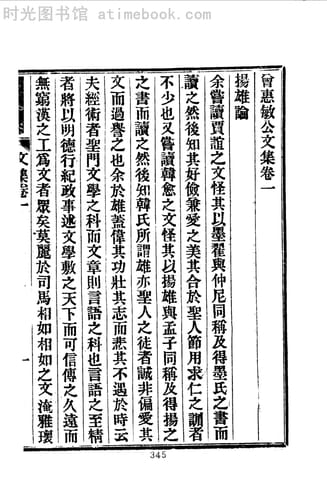 时光图书馆 atimebook.com
曾惠敏公文集卷一
揚雄論
余嘗讀賈誼之文怪其以墨翟與仲尼同稱及得墨氏之書而
讀之然後知其好儉兼愛之美其合於聖人節用求仁之訓者
不少也又嘗讀韓愈之文怪其以揚雄與孟子同稱及得揚之
之書而讀之然後知韓氏所謂雄亦聖人之徒者誠非偏愛其
文而過譽之也余於雄蓋偉其功壯其志而悲其不遇於時云
夫經術者聖門文學之科而文章則言語之科也言語之至精
者將以明德行紀政事述文學敷之天下而可信傳之久遠而
無窮漢之工為文者眾矣莫麗於司馬相如相如之文淹雅瓌
文集卷一
一
345